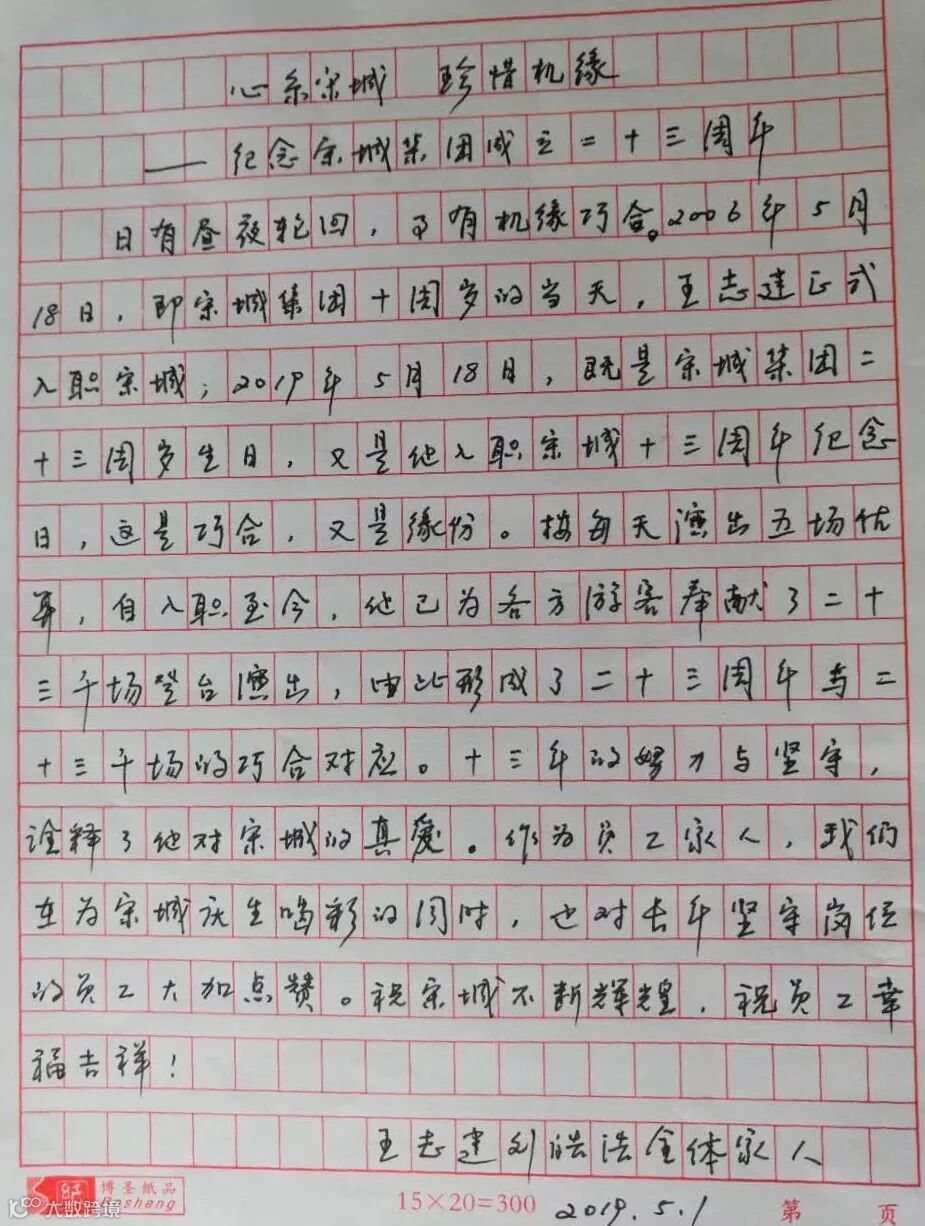 心系宋城 珍惜机缘
——纪念宋城集团成立二十三周年
日有昼夜轮回，事有机缘巧合。2006年5月
18日，即宋城集团十周岁的当天，王志建正式
入职宋城；2019年5月18日，既是宋城集团二
十三周岁生日，又是他入职宋城十三周年纪念
日，这是巧合，又是缘份。按每天演出五场估
算，自入职至今，他已为各方游客奉献了二十
三千场登台演出，由此形成了二十三周年与二
十三千场的巧合对应。十三年的努力与坚守，
诠释了他对宋城的真爱。作为员工家人，我们
在为宋城庆生喝彩的同时，也对长年坚守岗位
的员工大加点赞。祝宋城不断辉煌，祝员工幸
福吉祥！
王志建刘 全体家人
博圣纸品
Bosheng
15×20=300
2019.5.1
第 页
大数跨境